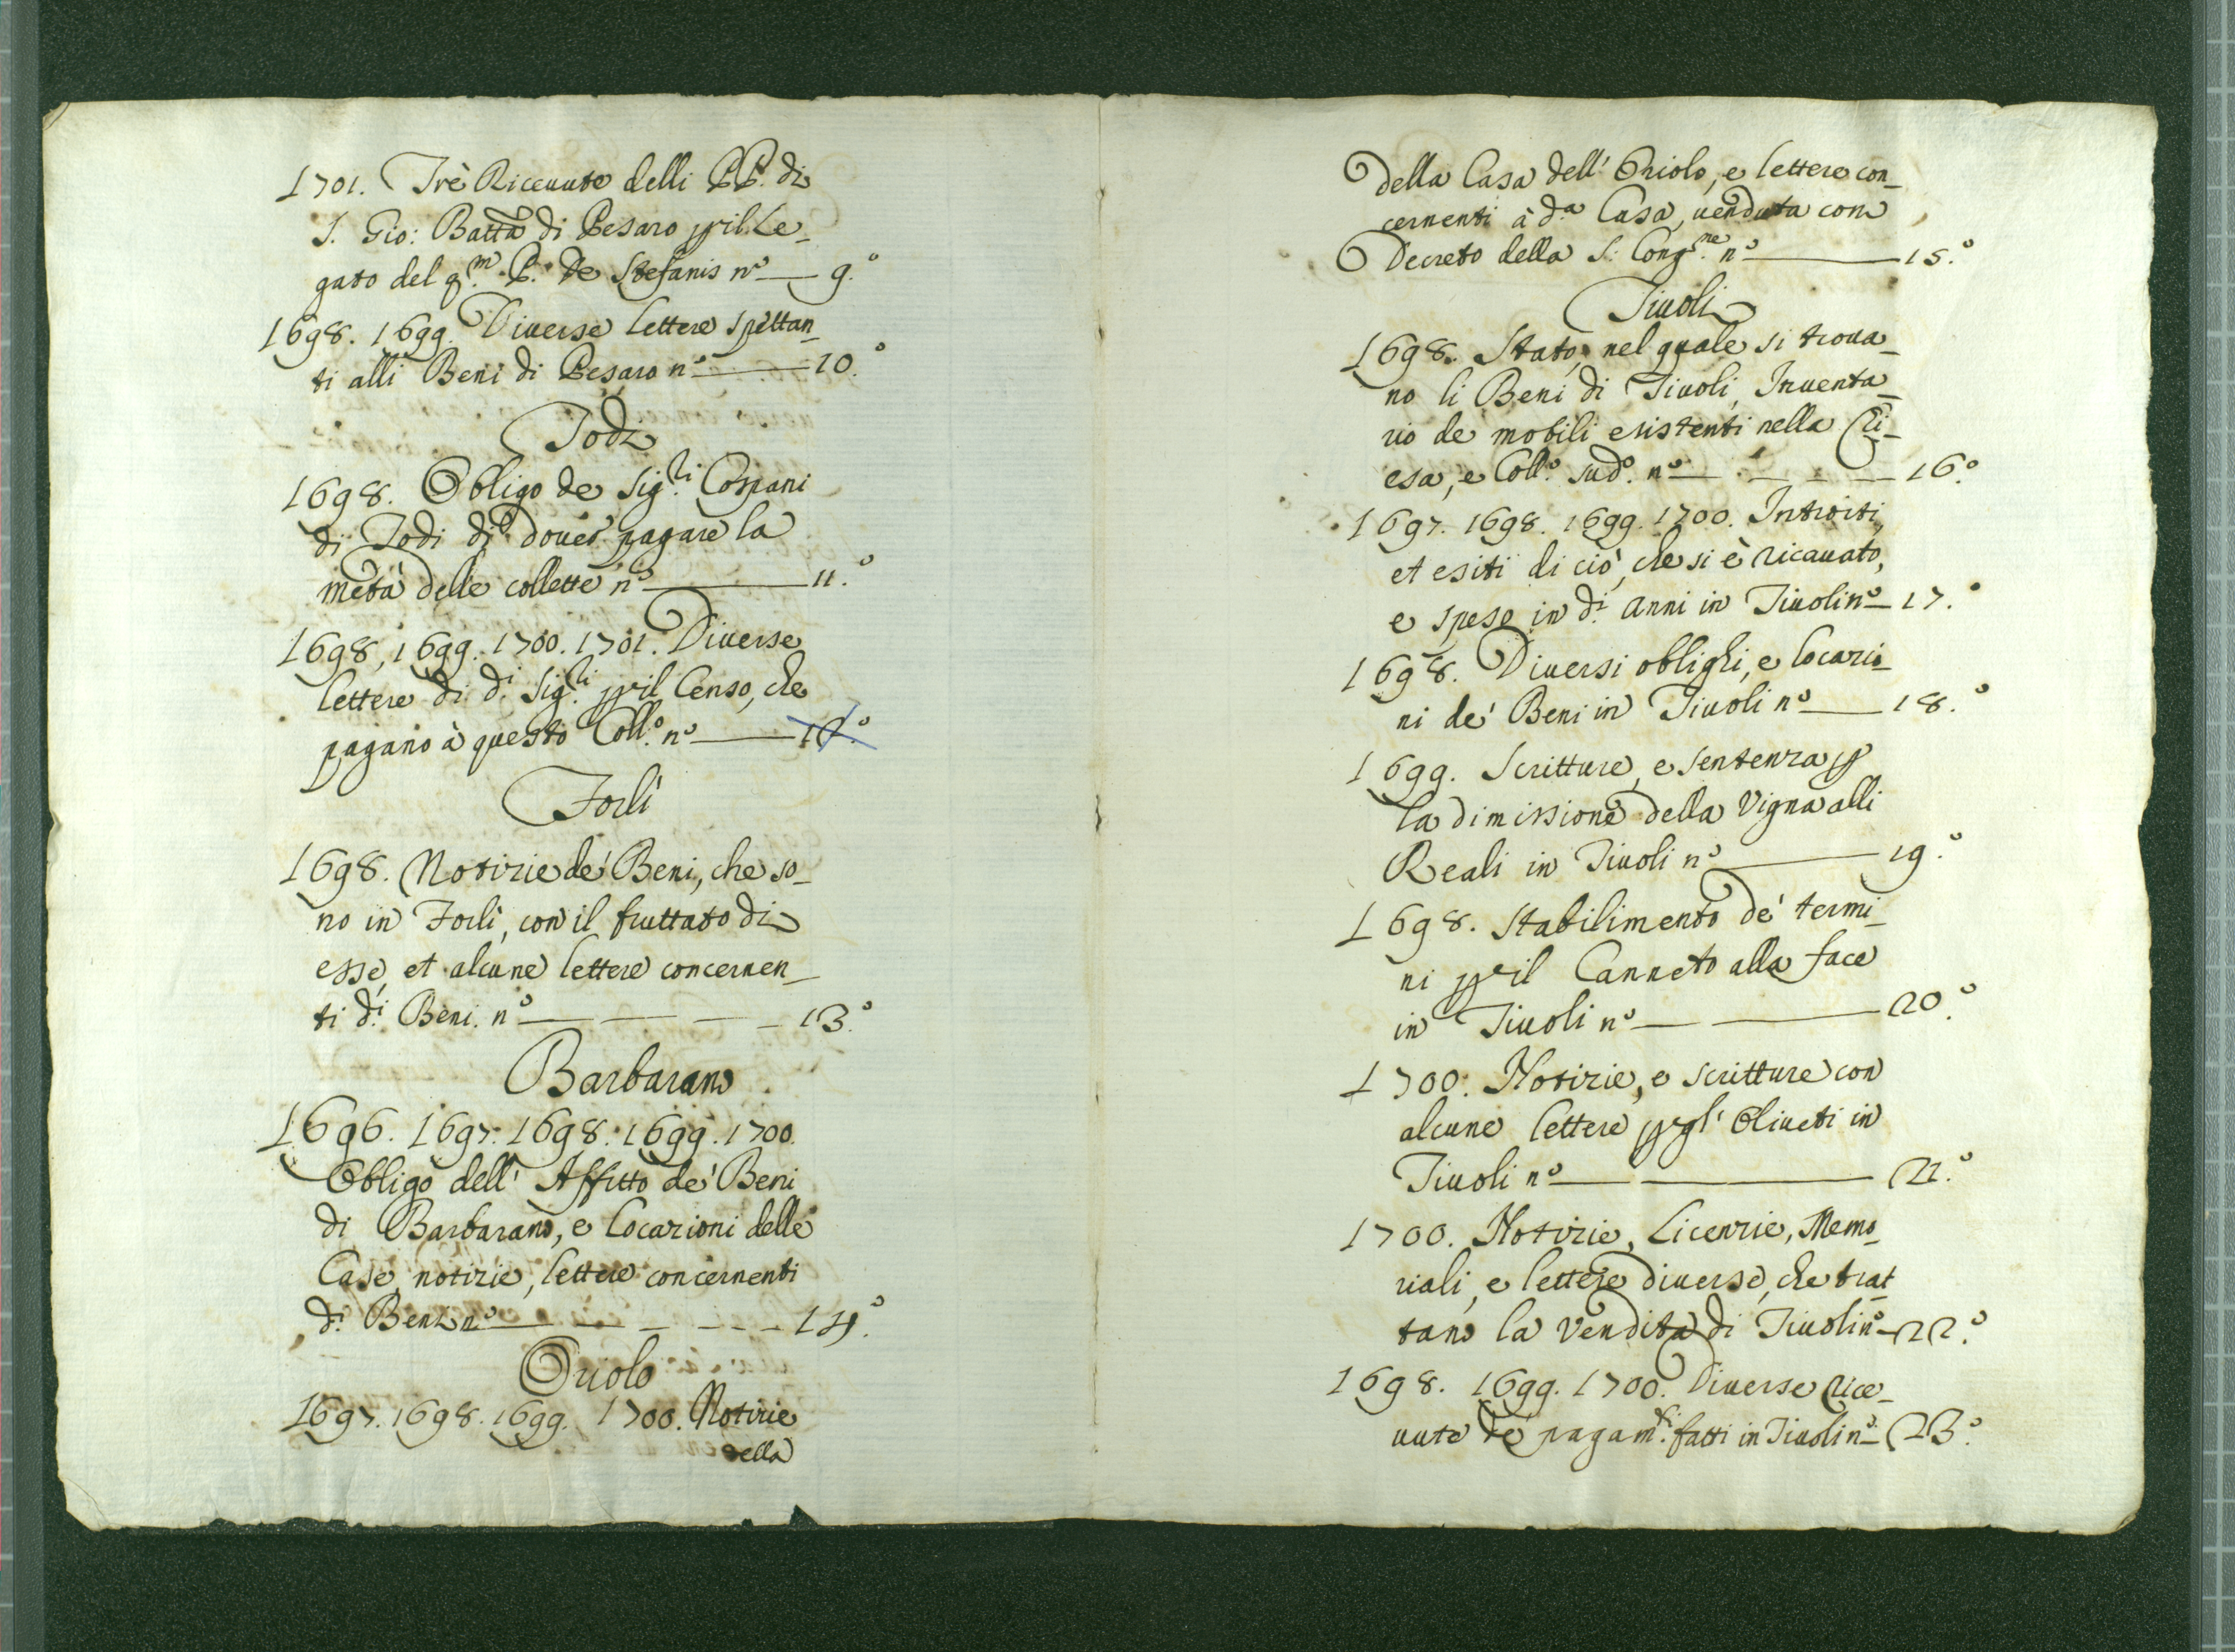 1701. Trè Riceuute delli PP. di
S. Gio: Batta di Pesaro p il Le_
gato del qm. P. De Stefanis n.° — 9.°
1698. 1699. Diuerse lettere spettan_
ti alli Beni di Pesaro n.° — 10.°
Todi
1698. Obligo de Sig.ri Cospani
di Todi di douer pagare la
metà delle collette n.° — 11.°
1698, 1699. 1700. 1701. Diuerse
lettere di d.i Sig.ri p il Censo, che
pagano à questo Coll.° n.° — 12.°
Forlì
1698. Notizie de' Beni, che so_
no in Forlì, con il fruttato di
esse, et alcune lettere concernen_
ti d.i Beni. n.° — — — — 13.°
Barbarano
1696. 1697. 1698. 1699. 1700.
Obligo dell' Affitto de' Beni
di Barbarano, e locazioni delle
Case, notizie, lettere concernenti
d.i Beni n.° — — — — 14.°
Oriolo
1697. 1698. 1699. 1700. Notizie
della
Della Casa dell' Oriolo, e lettere con_
cernenti à d.a Casa, uenduta con
Decreto della S. Cong.ne n.° — 15.°
Tiuoli
1698. Stato, nel quale si troua_
no li Beni di Tiuoli, Inuenta_
rio de mobili esistenti nella Chi_
esa, e Coll.° sud.° n.° — — — 16.°
1697. 1698. 1699. 1700. Introiti,
et esiti di ciò, che si è ricauato,
e speso in d.i anni in Tiuoli n.° — 17.°
1698. Diuersi oblighi, e locazio_
ni de' Beni in Tiuoli n.° — 18.°
1699. Scritture, e sentenza p
la dimissione della Vigna alli
Reali in Tiuoli n.° — 19.°
1698. Stabilimento de' termi_
ni p il Canneto alla face
in Tiuoli n.° — — 20.°
1700. Notizie, e scritture con
alcune lettere p gl' Oliueti in
Tiuoli n.° — — 21.°
1700. Notizie, Licenzie, Memo_
riali, e lettere diuerse, che trat_
tano la Vendita di Tiuoli n.° — 22.°
1698. 1699. 1700. Diuerse rice_
uute de' pagam.ti fatti in Tiuoli n.° — 23.°